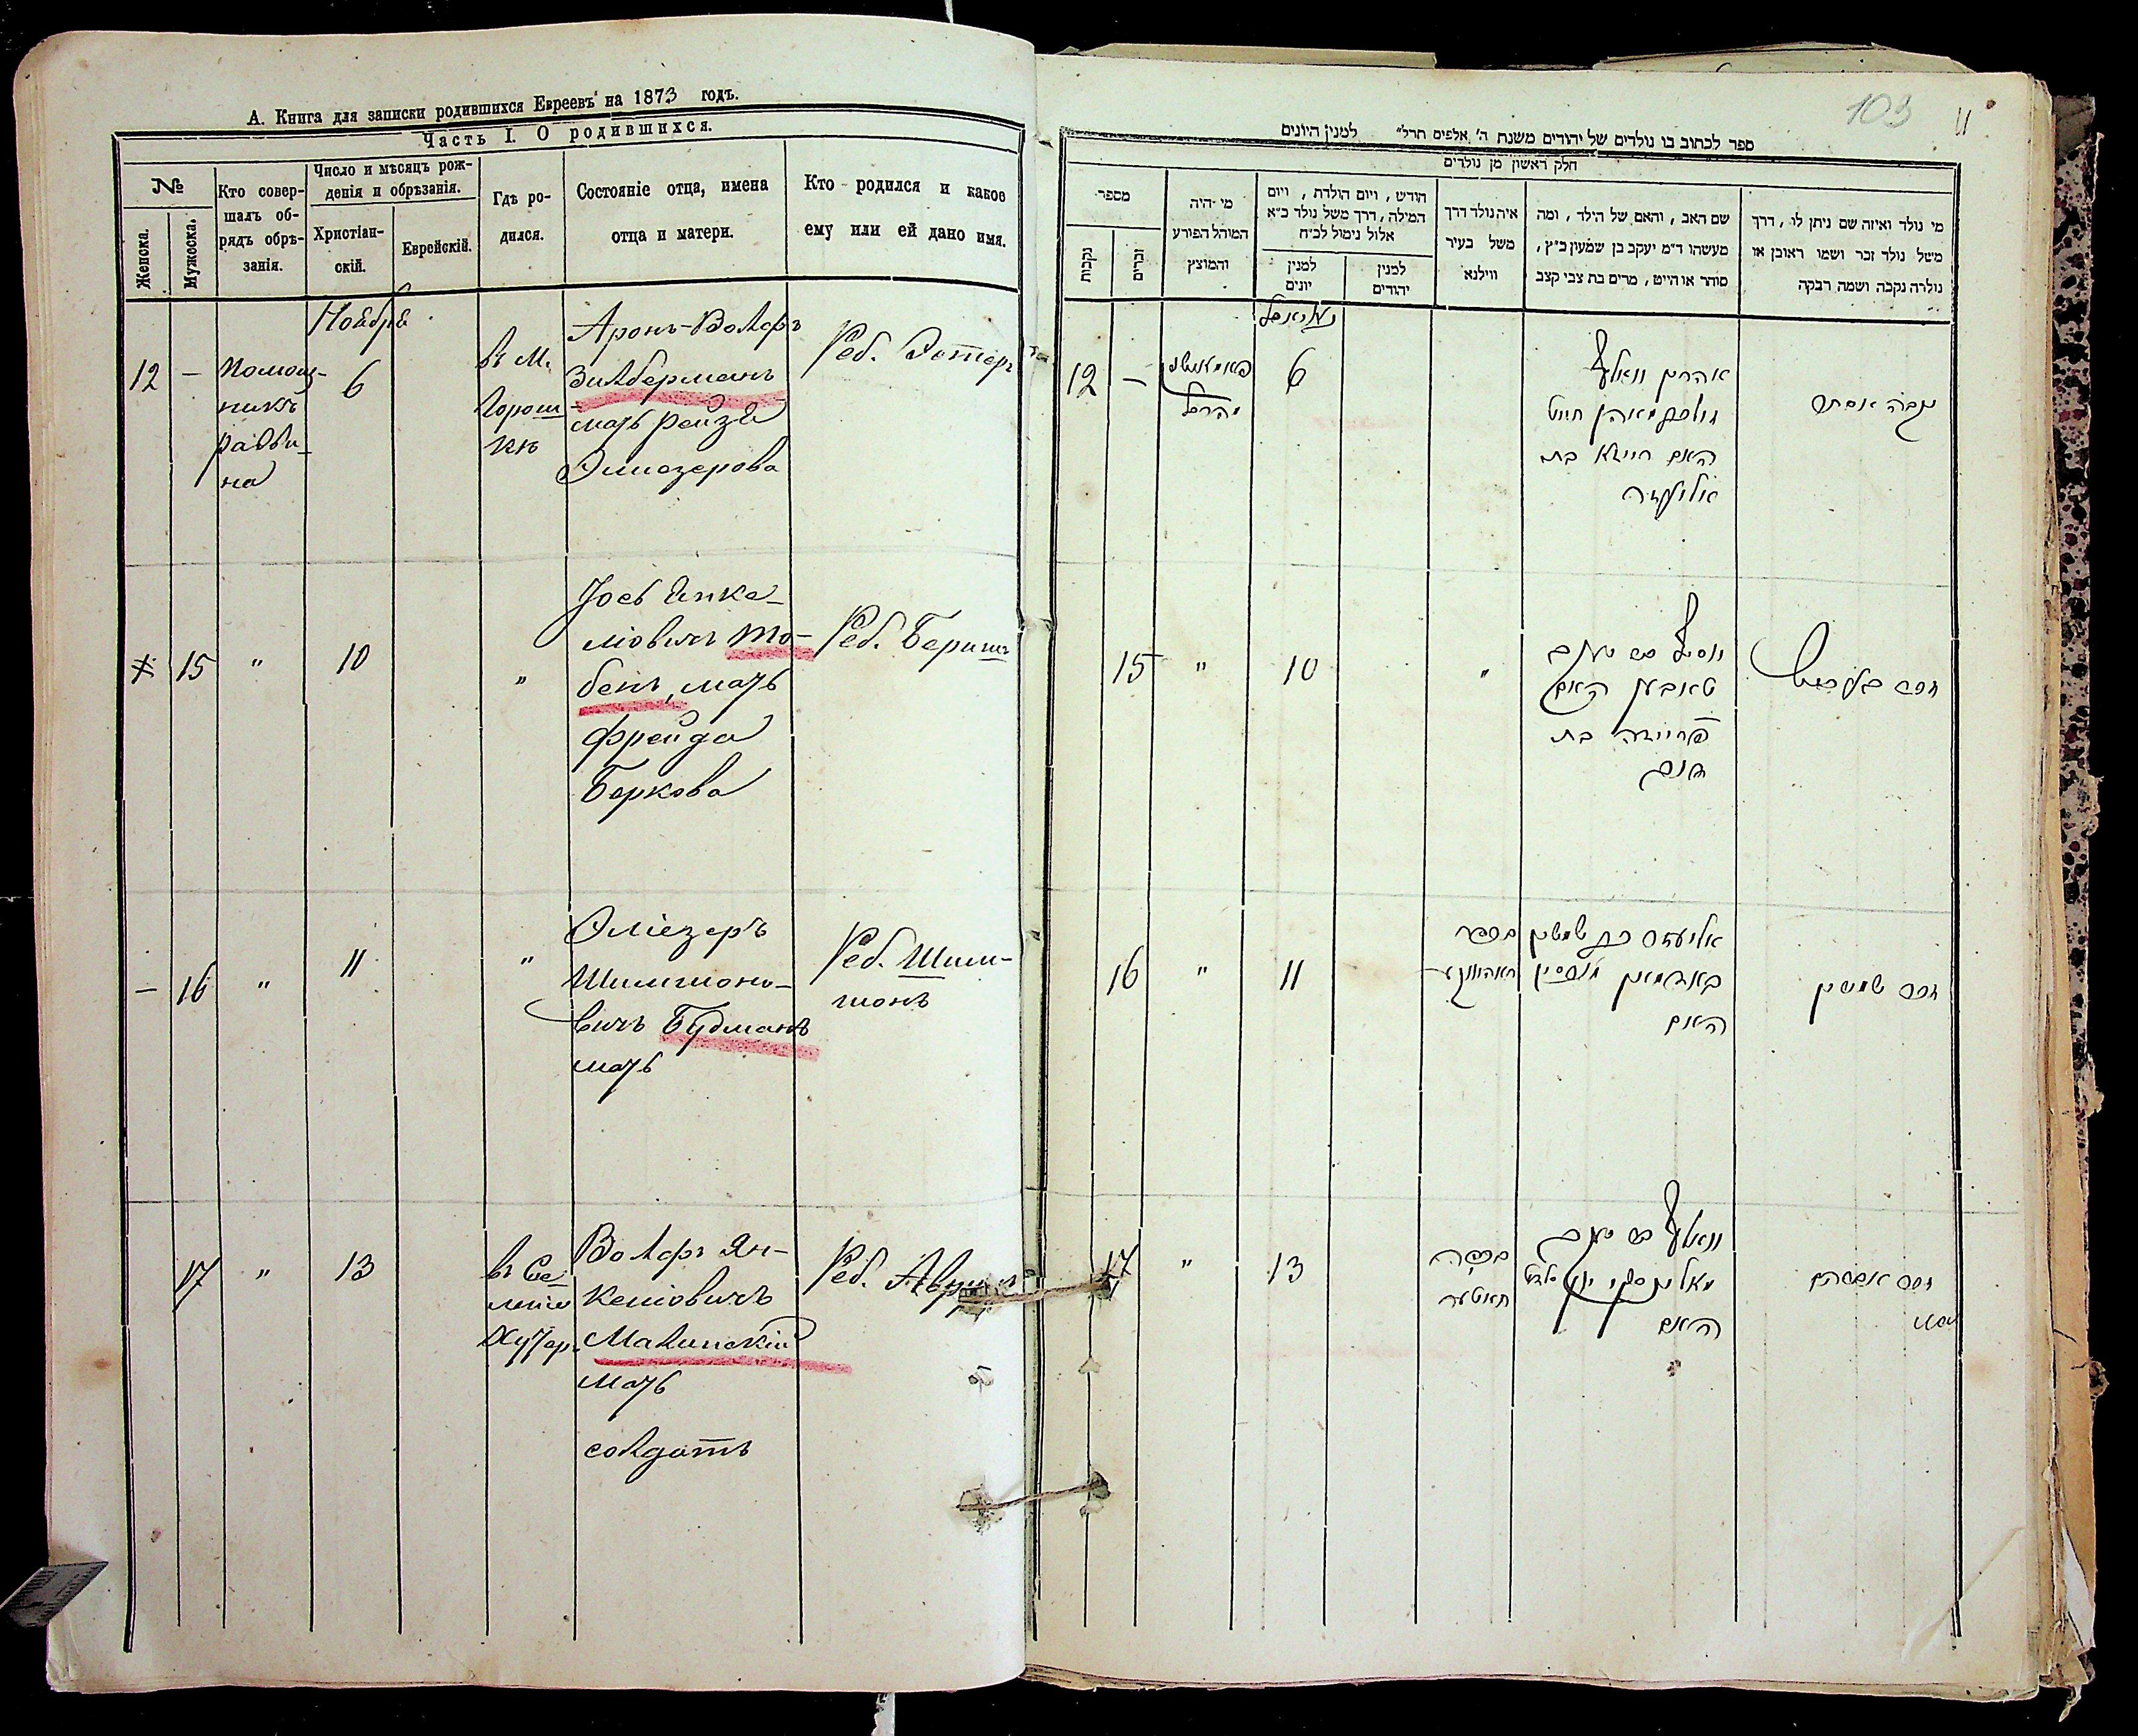 А. Книга для записки родившихся Евреевъ на 1873 годъ.
Часть I. О родившихся.
№
Женска.
Мужеска.
Кто совер-
шалъ об-
рядъ обрѣ-
занія.
Число и мѣсяцъ рож-
денія и обрѣзанія.
Христіан-
скій.
Еврейскій.
Гдѣ ро-
дился.
Состояніе отца, имена
отца и матери.
Кто родился и какое
ему или ей дано имя.
Ноября
12 —
Помощ-
никъ
равви-
на
6
въ М.
Горош-
кѣ
Аронъ-Вольфъ
Зильберманъ
мать Рейзя
Элиазерова
Реб. Эстеръ
15 " 10 "
Іось Янке-
ліовичъ То-
бенъ, мать
Фрейда
Беркова
Реб. Беришъ
— 16 " 11 "
Эліезеръ
Шимшоно-
вичъ Будманъ
мать
Реб. Шим-
шонъ
17 " 13
въ Се-
леніи
Хутор.
Вольфъ Ян-
келіовичъ
Малинскій
мать
солдатъ
Реб.
103
11
ספר לכתוב בו נולדים של יהודים משנת ה' אלפים תרל" למנין היונים
חלק ראשון מן נולדים
מספר
נקבות
זכרים
מי היה
המוהל הפורע
והמוצץ
חודש, ויום הולדת, ויום
המילה, דרך משל נולד כ"א
אלול נימול לכ"ח
למנין
יונים
למנין
יהודים
איה נולד דרך
משל בעיר
ווילנא
שם האב, והאם של הילד, ומה
מעשהו ד"מ יעקב בן שמעון כ"ץ,
סוחר או חייט, מרים בת צבי קצב
מי נולד ואיזה שם ניתן לו, דרך
משל נולד זכר ושמו ראובן או
נולדה נקבה ושמה רבקה
12 —
6
אהרן וואלף
זילבערמאן חייט
האם רייזא בת
אליעזר
נקבה אסתר
15 " 10 "
יוסף בר יעקב
טאבען האם
פריידה בת
זכר בעריש
16 " 11
אליעזר בר שמשון
האם
זכר שמשון
17 " 13
וואלף בר יעקב
מאלינסקי
האם
זכר אברהם